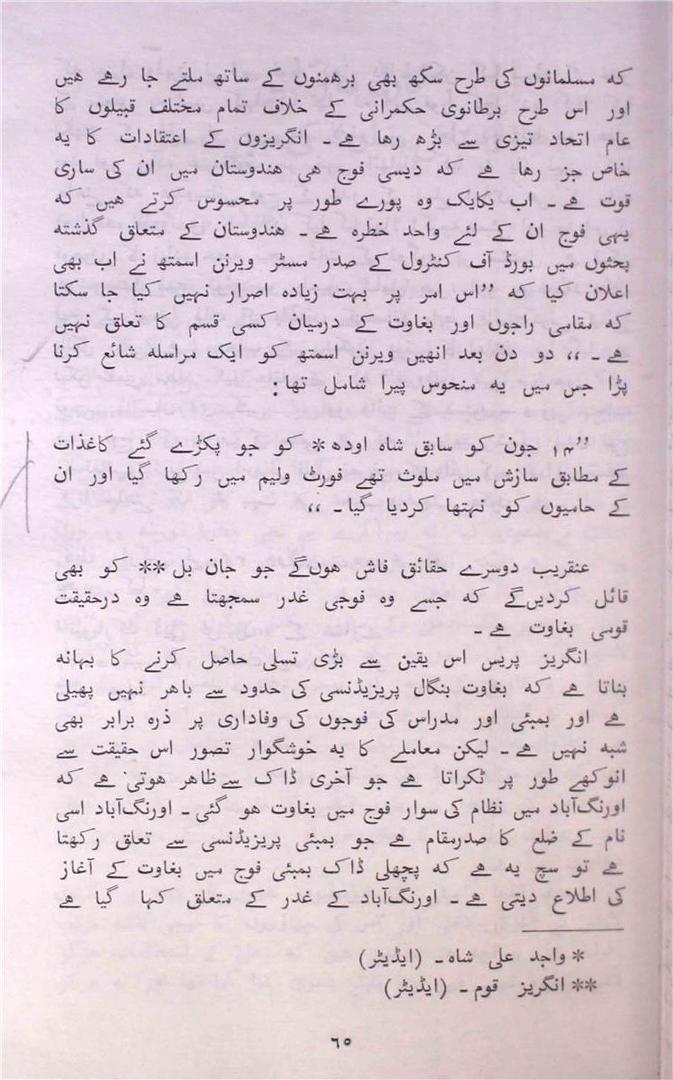 که مسلمانوں کی طرح سکھ بھی برھمنوں کے ساتھ ملتے جا رھے ھیں
اور اس طرح برطانوی حکمرانی کے خلاف تمام مختلف قبیلوں کا
عام اتحاد تیزی سے بڑھ رھا ھے۔ انگریزوں کے اعتقادات کا یہ
خاص جز رھا ھے کہ دیسی فوج ھی ھندوستان میں ان کی ساری
قوت ھے۔ اب یکایک وہ پورے طور پر محسوس کرتے ھیں کہ
یہی فوج ان کے لئے واحد خطرہ ھے۔ ھندوستان کے متعلق گذشتہ
بحثوں میں بورڈ آف کنٹرول کے صدر مسٹر ویرنن اسمتھ نے اب بھی
اعلان کیا کہ ”اس امر پر بہت زیادہ اصرار نہیں کیا جا سکتا
کہ مقامی راجوں اور بغاوت کے درمیان کسی قسم کا تعلق نہیں
ھے۔،، دو دن بعد انھیں ویرنن اسمتھ کو ایک مراسلہ شائع کرنا
پڑا جس میں یہ منحوس پیرا شامل تھا:
”۱۴ جون کو سابق شاہ اودھ* کو جو پکڑے گئے کاغذات
کے مطابق سازش میں ملوث تھے فورٹ ولیم میں رکھا گیا اور ان
کے حامیوں کو نہتھا کردیا گیا۔،،
عنقریب دوسرے حقائق فاش ھوںگے جو جان بل** کو بھی
قائل کردیںگے کہ جسے وہ فوجی غدر سمجھتا ھے وہ درحقیقت
قومی بغاوت ھے۔
انگریز پریس اس یقین سے بڑی تسلی حاصل کرنے کا بہانہ
بناتا ھے کہ بغاوت بنگال پریزیڈنسی کی حدود سے باھر نہیں پھیلی
ھے اور بمبئی اور مدراس کی فوجوں کی وفاداری پر ذرہ برابر بھی
شبہ نہیں ھے۔ لیکن معاملے کا یہ خوشگوار تصور اس حقیقت سے
انوکھے طور پر ٹکراتا ھے جو آخری ڈاک سے ظاھر ھوتی ھے کہ
اورنگآباد میں نظام کی سوار فوج میں بغاوت ھو گئی۔ اورنگآباد اسی
نام کے ضلع کا صدرمقام ھے جو بمبئی پریزیڈنسی سے تعلق رکھتا
ھے تو سچ یہ ھے کہ پچھلی ڈاک بمبئی فوج میں بغاوت کے آغاز
کی اطلاع دیتی ھے۔ اورنگآباد کے غدر کے متعلق کہا گیا ھے
* واجد علی شاہ۔ (ایڈیٹر)
** انگریز قوم۔ (ایڈیٹر)
٦٥